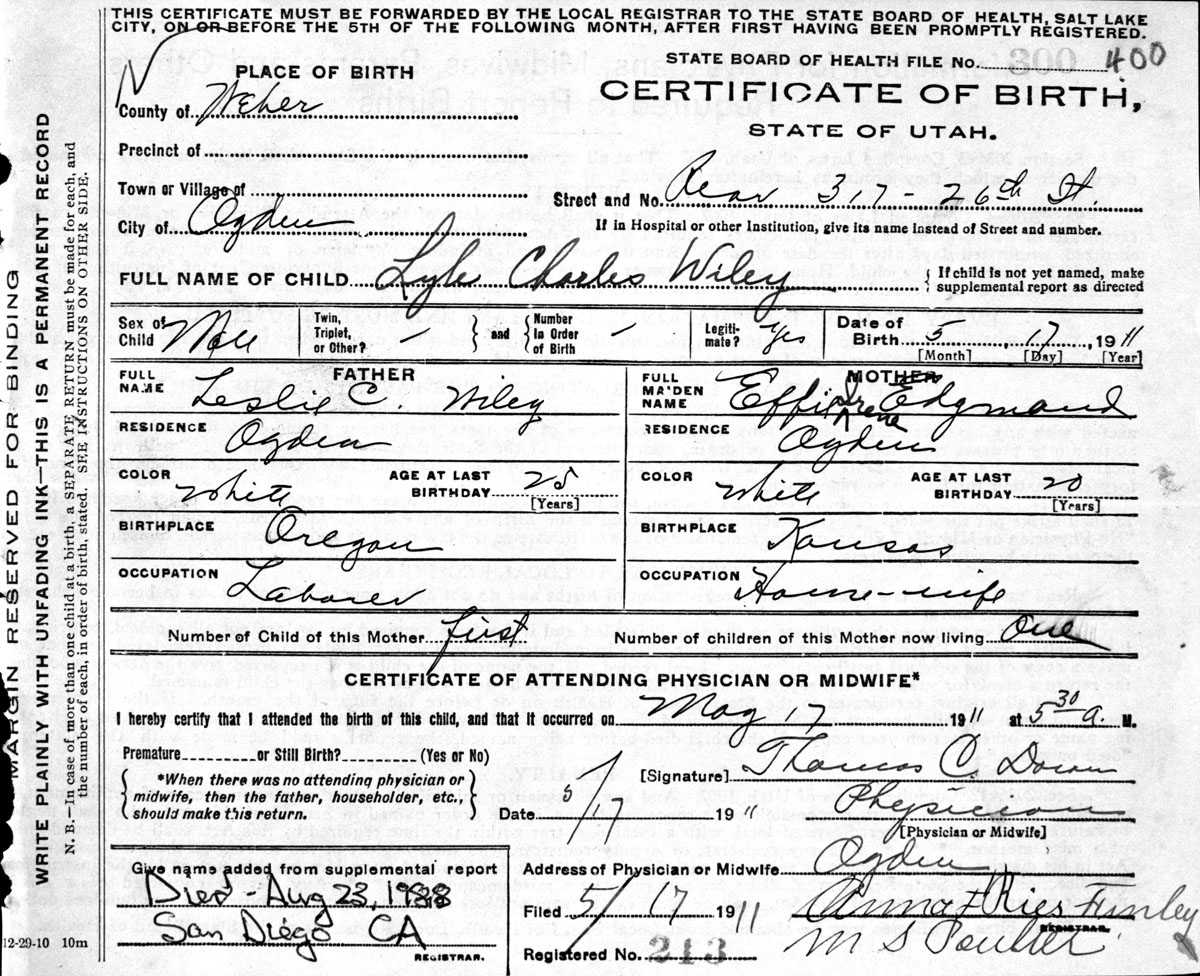 THIS CERTIFICATE MUST BE FORWARDED BY THE LOCAL REGISTRAR TO THE STATE BOARD OF HEALTH, SALT LAKE
CITY, ON OR BEFORE THE 5TH OF THE FOLLOWING MONTH, AFTER FIRST HAVING BEEN PROMPTLY REGISTERED.
STATE BOARD OF HEALTH FILE No. 300 400
PLACE OF BIRTH
CERTIFICATE OF BIRTH,
County of Weber
STATE OF UTAH.
Precinct of
Town or Village of
Street and No. Rear 317 - 26th St.
City of Ogden
If in Hospital or other Institution, give its name instead of Street and number.
FULL NAME OF CHILD Lyle Charles Wiley
{ If child is not yet named, make
supplemental report as directed
Sex of Child Male
Twin, Triplet, or Other? -
} and { Number In Order of Birth -
Legiti-mate? Yes
Date of Birth 5, 17, 1911
[Month] [Day] [Year]
FATHER
FULL NAME Leslie C. Wiley
RESIDENCE Ogden
COLOR White AGE AT LAST BIRTHDAY 25
[Years]
BIRTHPLACE Oregon
OCCUPATION Laborer
MOTHER
FULL MAIDEN NAME Effie Irene Edgmand
RESIDENCE Ogden
COLOR White AGE AT LAST BIRTHDAY 20
[Years]
BIRTHPLACE Kansas
OCCUPATION House-wife
Number of Child of this Mother first Number of children of this Mother now living One
CERTIFICATE OF ATTENDING PHYSICIAN OR MIDWIFE*
I hereby certify that I attended the birth of this child, and that it occurred on May 17 1911 at 5 30 a. M.
Premature? or Still Birth? (Yes or No)
{ *When there was no attending physician or
midwife, then the father, householder, etc.,
should make this return. }
[Signature] Thomas C.
Date 5/17 1911 Physician
[Physician or Midwife]
Address of Physician or Midwife Ogden
Give name added from supplemental report
Died Aug 23, 1988
San Diego CA
REGISTRAR.
Filed 5/17 1911 Anna Ries Finley
M S Poulter
REGISTRAR.
Registered No. 213
12-29-10 10m
MARGIN RESERVED FOR BINDING
WRITE PLAINLY WITH UNFADING INK—THIS IS A PERMANENT RECORD
N. B.—In case of more than one child at a birth, a SEPARATE RETURN must be made for each, and
the number of each, in order of birth, stated. SEE INSTRUCTIONS ON OTHER SIDE.